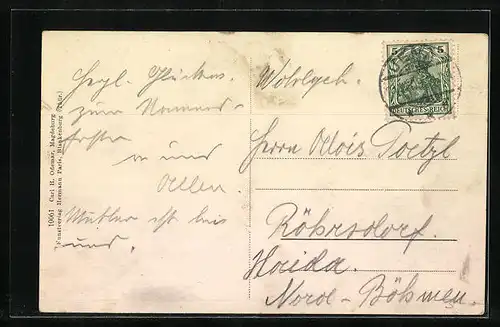 Herzl. Glückw.
zum Namens-
feste
Mutter ist bei
uns.
10661 Carl H. Odemar, Magdeburg
Kunstverlag Hermann Paris, Blankenberg (Thür.)
5 5
DEUTSCHES REICH
Wohlgeb.
Herrn Alois Poetzl
Röhrsdorf.
Haida.
Nord-Böhmen.